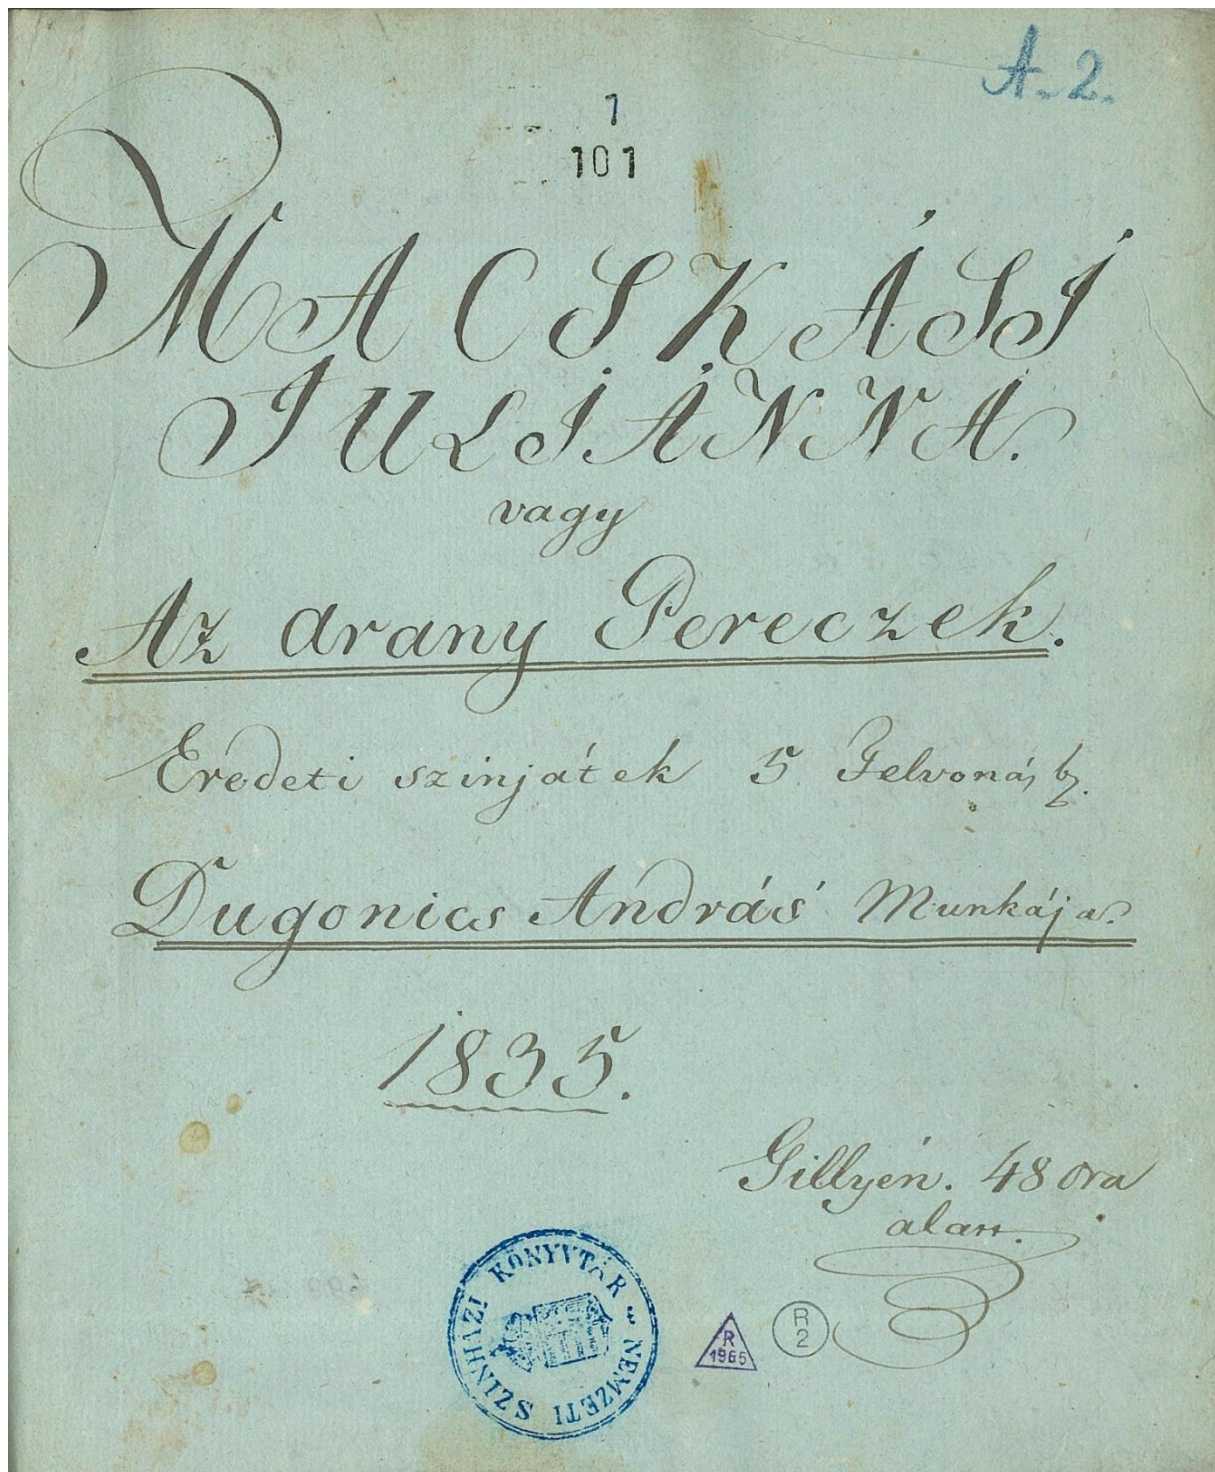 A. 2.
1
101
MACSKÁSI
JULIÁNNA.
vagy
Az arany Pereczek.
Eredeti szinjáték 5 Felvonásb.
Dugonics András Munkája.
1835.
Gillyén. 48 óra
alatt.
SZINHÁZI KÖNYVTÁR NEMZETI
R
1965
R
2